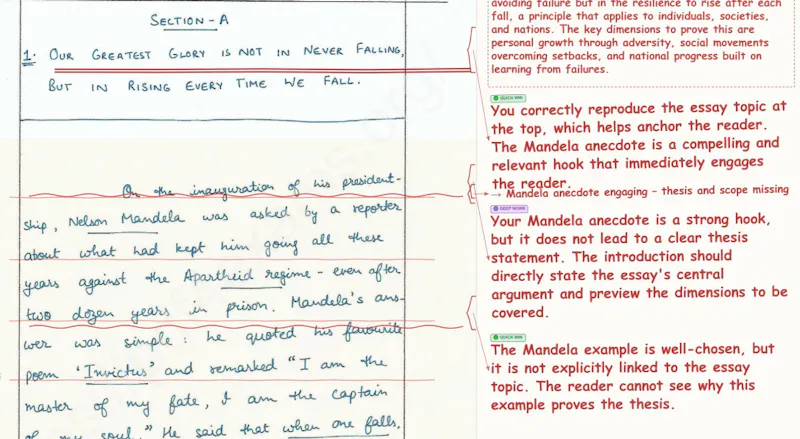 SECTION - A
1. OUR GREATEST GLORY IS NOT IN NEVER FALLING,
BUT IN RISING EVERY TIME WE FALL.
On the inauguration of his president-
ship, Nelson Mandela was asked by a reporter
about what had kept him going all these
years against the Apartheid regime - even after
two dozen years in prison. Mandela's ans-
wer was simple : he quoted his favourite
poem 'Invictus' and remarked "I am the
master of my fate, I am the captain
of my soul." He said that when one falls,
avoiding failure but in the resilience to rise after each
fall, a principle that applies to individuals, societies,
and nations. The key dimensions to prove this are
personal growth through adversity, social movements
overcoming setbacks, and national progress built on
learning from failures.
QUICK WIN
You correctly reproduce the essay topic at
the top, which helps anchor the reader.
The Mandela anecdote is a compelling and
relevant hook that immediately engages
the reader.
Mandela anecdote engaging - thesis and scope missing
DEEP WORK
Your Mandela anecdote is a strong hook,
but it does not lead to a clear thesis
statement. The introduction should
directly state the essay's central
argument and preview the dimensions to be
covered.
QUICK WIN
The Mandela example is well-chosen, but
it is not explicitly linked to the essay
topic. The reader cannot see why this
example proves the thesis.